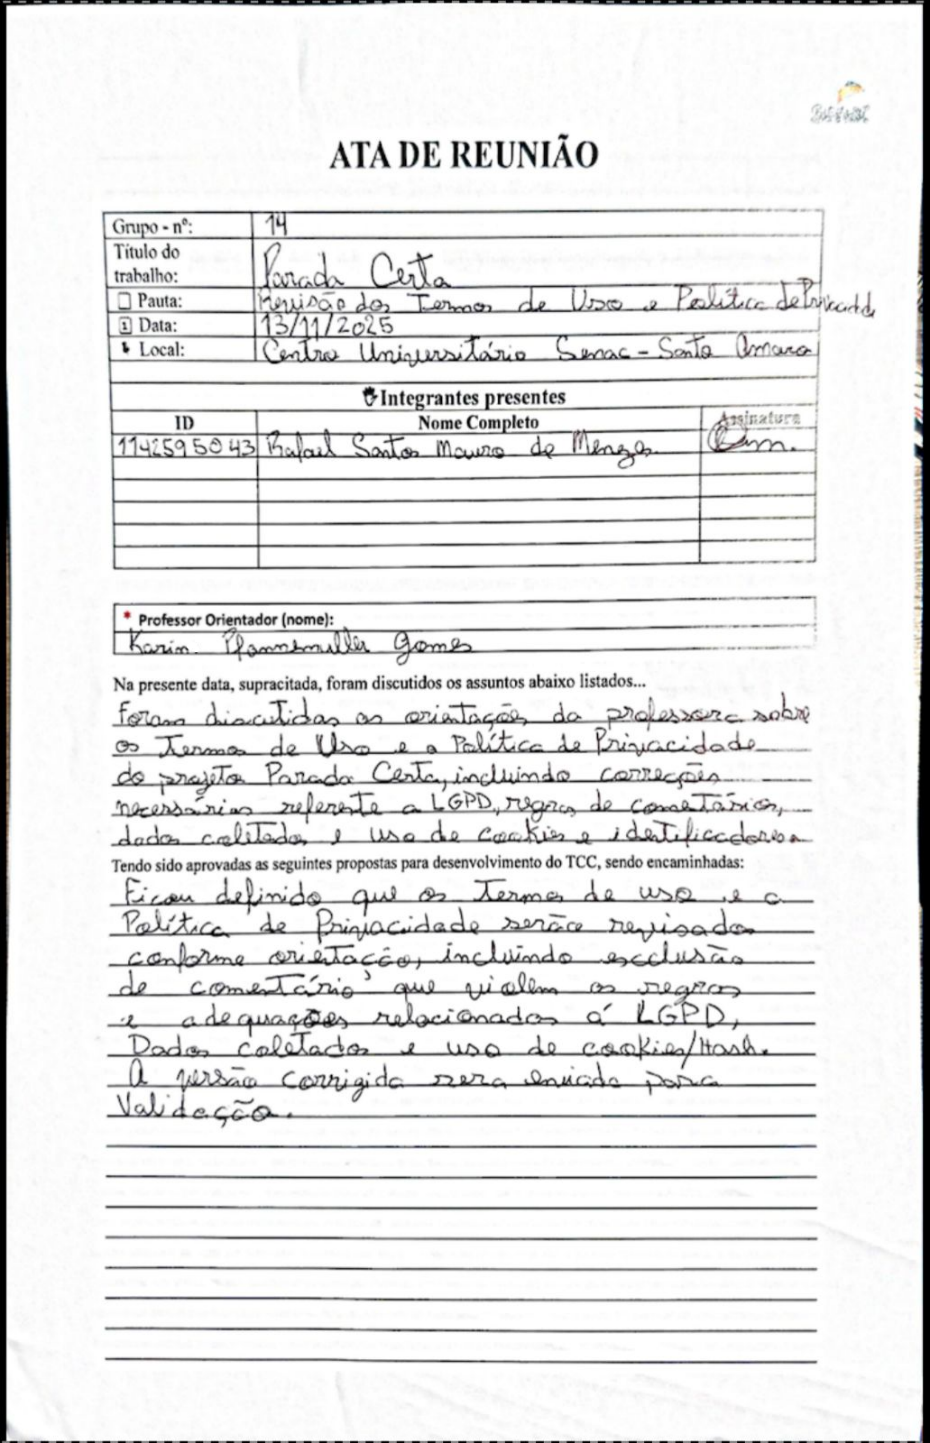 ATA DE REUNIÃO
Grupo - nº: 14
Título do trabalho: Parada Certa
Pauta: Revisão dos Termos de Uso e Política de Privacidade
Data: 13/11/2025
Local: Centro Universitário Senac - Santo Amaro
Integrantes presentes
ID Nome Completo Assinatura
1142595043 Rafael Santos Mauro de Menezes
* Professor Orientador (nome):
Karin Gomes
Na presente data, supracitada, foram discutidos os assuntos abaixo listados...
Foram discutidas as orientações da professora sobre
os Termos de Uso e a Política de Privacidade
do projeto Parada Certa, incluindo correções
necessárias referente a LGPD, regras de comentários,
dados coletados e uso de cookies e identificadores.
Tendo sido aprovadas as seguintes propostas para desenvolvimento do TCC, sendo encaminhadas:
Ficou definido que os Termos de uso e a
Política de Privacidade serão revisados
conforme orientação, incluindo excclusão
de comentários que violem as regras
e adequações relacionados á LGPD,
Dados coletados e uso de cookies/Hash.
A versão corrigida sera enviada para
Validação.